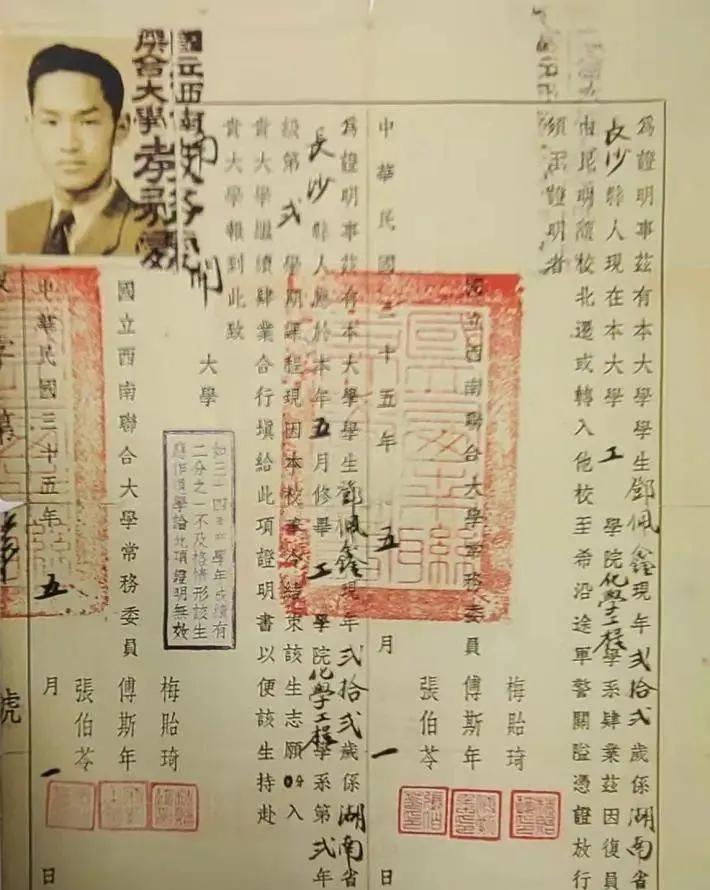 為證明事茲有本大學學生鄧佩鑫現年弍拾弍歲係湖南省
長沙縣人現在本大學工學院化學工程學系肄業茲因復員
由昆明隨校北遷或轉入他校至希沿途軍警關隘憑證放行
須至證明者
梅貽琦
國立西南聯合大學常務委員 傅斯年
張伯苓
中華民國三十五年五月一日
為證明事茲有本大學學生鄧佩鑫現年弍拾弍歲係湖南省
長沙縣人應於本年五月修畢工學院化學工程學系第弍年
級第弍學期課程現因本校奉令結束該生志願入
貴大學繼續肄業合行填給此項證明書以便該生持赴
貴大學報到此致
南開大學
如三十四年度學年成績有
二分之一不及格情形該生
應作退學論此項證明無效
梅貽琦
國立西南聯合大學常務委員 傅斯年
張伯苓
中華民國三十五年五月一日
字第 號
國立西南
聯合大學